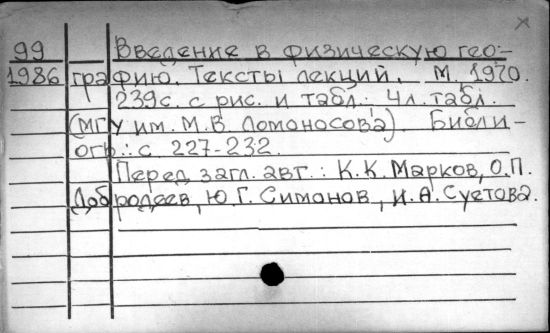 99 Введение в физическую гео-
1986 графию. Тексты лекций. М. 1970.
239с. с рис. и табл.; 4л. табл.
(МГУ им. М.В. Ломоносова). Библи-
огр.: с. 227-232.
Перед загл. авт.: К.К. Марков, О.П.
Добродеев, Ю.Г. Симонов, И.А. Суетова.